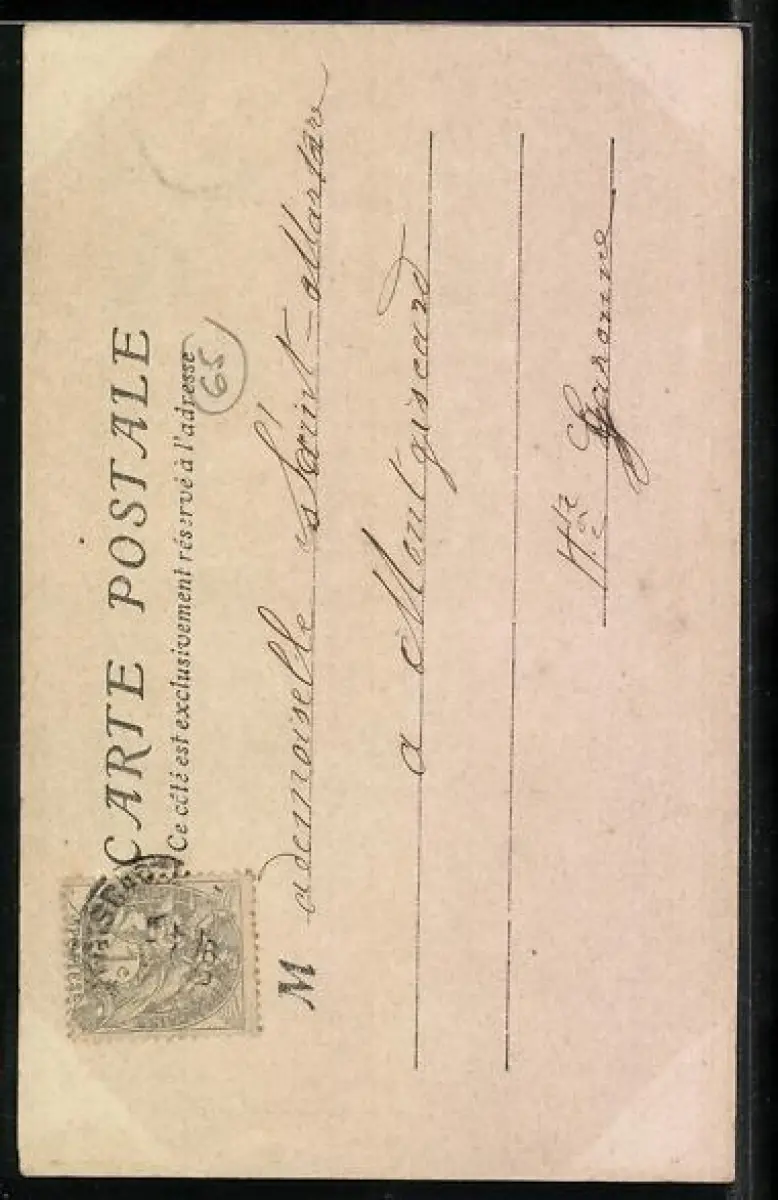 CARTE POSTALE
Ce côté est exclusivement réservé à l'adresse
65
1c
Mademoiselle Saint-Martin
a Montgiscard
Hte Garonne